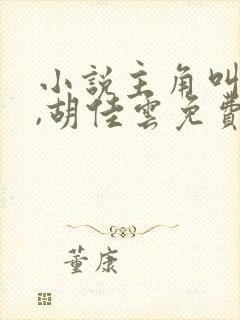 小說主角叫
,胡佳雲免費
董康